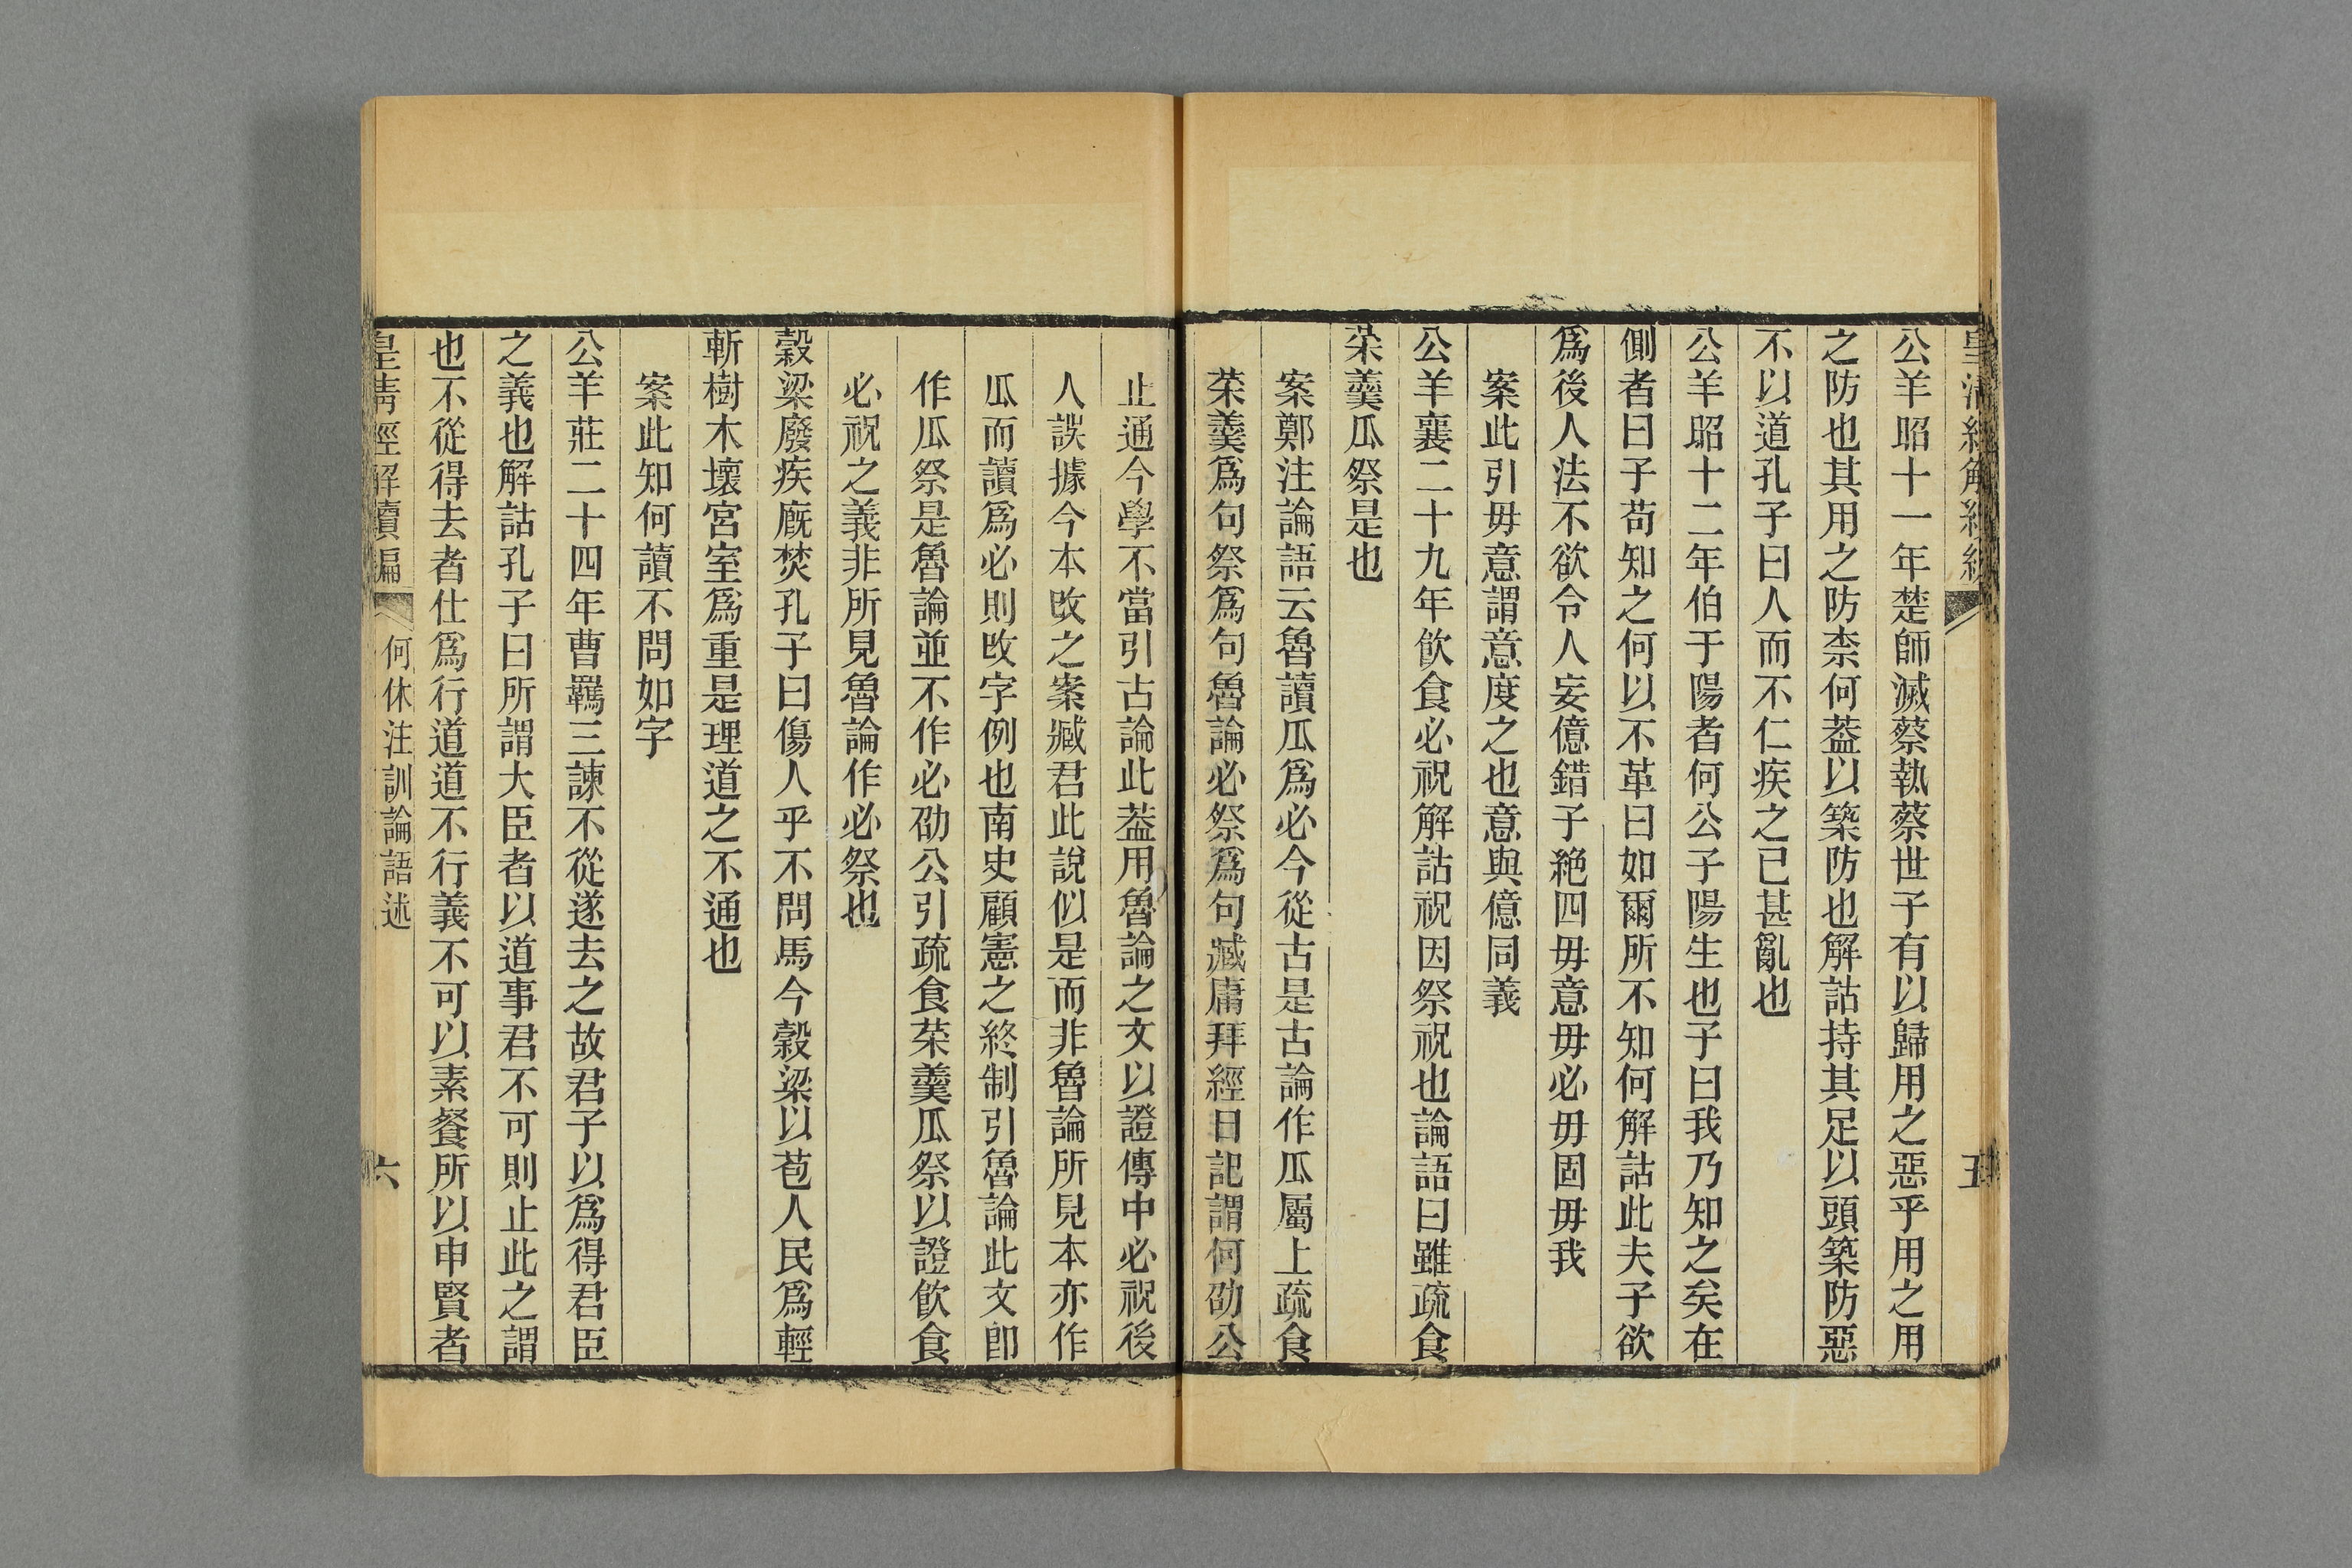 皇清經解續編
五
公羊昭十一年楚師滅蔡執蔡世子有以歸用之惡乎用之用
之防也其用之防柰何葢以築防也解詁持其足以頭築防惡
不以道孔子曰人而不仁疾之已甚亂也
公羊昭十二年伯于陽者何公子陽生也子曰我乃知之矣在
側者曰子苟知之何以不革曰如爾所不知何解詁此夫子欲
爲後人法不欲令人妄億錯子絶四毋意毋必毋固毋我
案此引毋意謂意度之也意與億同義
公羊襄二十九年飲食必祝解詁祝因祭祝也論語曰雖疏食
菜羹瓜祭是也
案鄭注論語云魯讀瓜爲必今從古是古論作瓜屬上疏食
菜羹爲句祭爲句魯論必祭爲句臧庸拜經日記謂何劭公
止通今學不當引古論此葢用魯論之文以證傳中必祝後
人誤據今本改之案臧君此說似是而非魯論所見本亦作
瓜而讀爲必則改字例也南史顧憲之終制引魯論此文卽
作瓜祭是魯論並不作必劭公引疏食菜羹瓜祭以證飲食
必祝之義非所見魯論作必祭也
穀梁廢疾廐焚孔子曰傷人乎不問馬今穀梁以苞人民爲輕
斬樹木壞宮室爲重是理道之不通也
案此知何讀不問如字
公羊莊二十四年曹羈三諫不從遂去之故君子以爲得君臣
之義也解詁孔子曰所謂大臣者以道事君不可則止此之謂
也不從得去者仕爲行道道不行義不可以素餐所以申賢者
皇清經解續編
何休注訓論語述
六